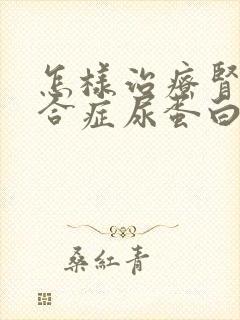 怎樣治療腎
合症尿蛋白
桑紅青